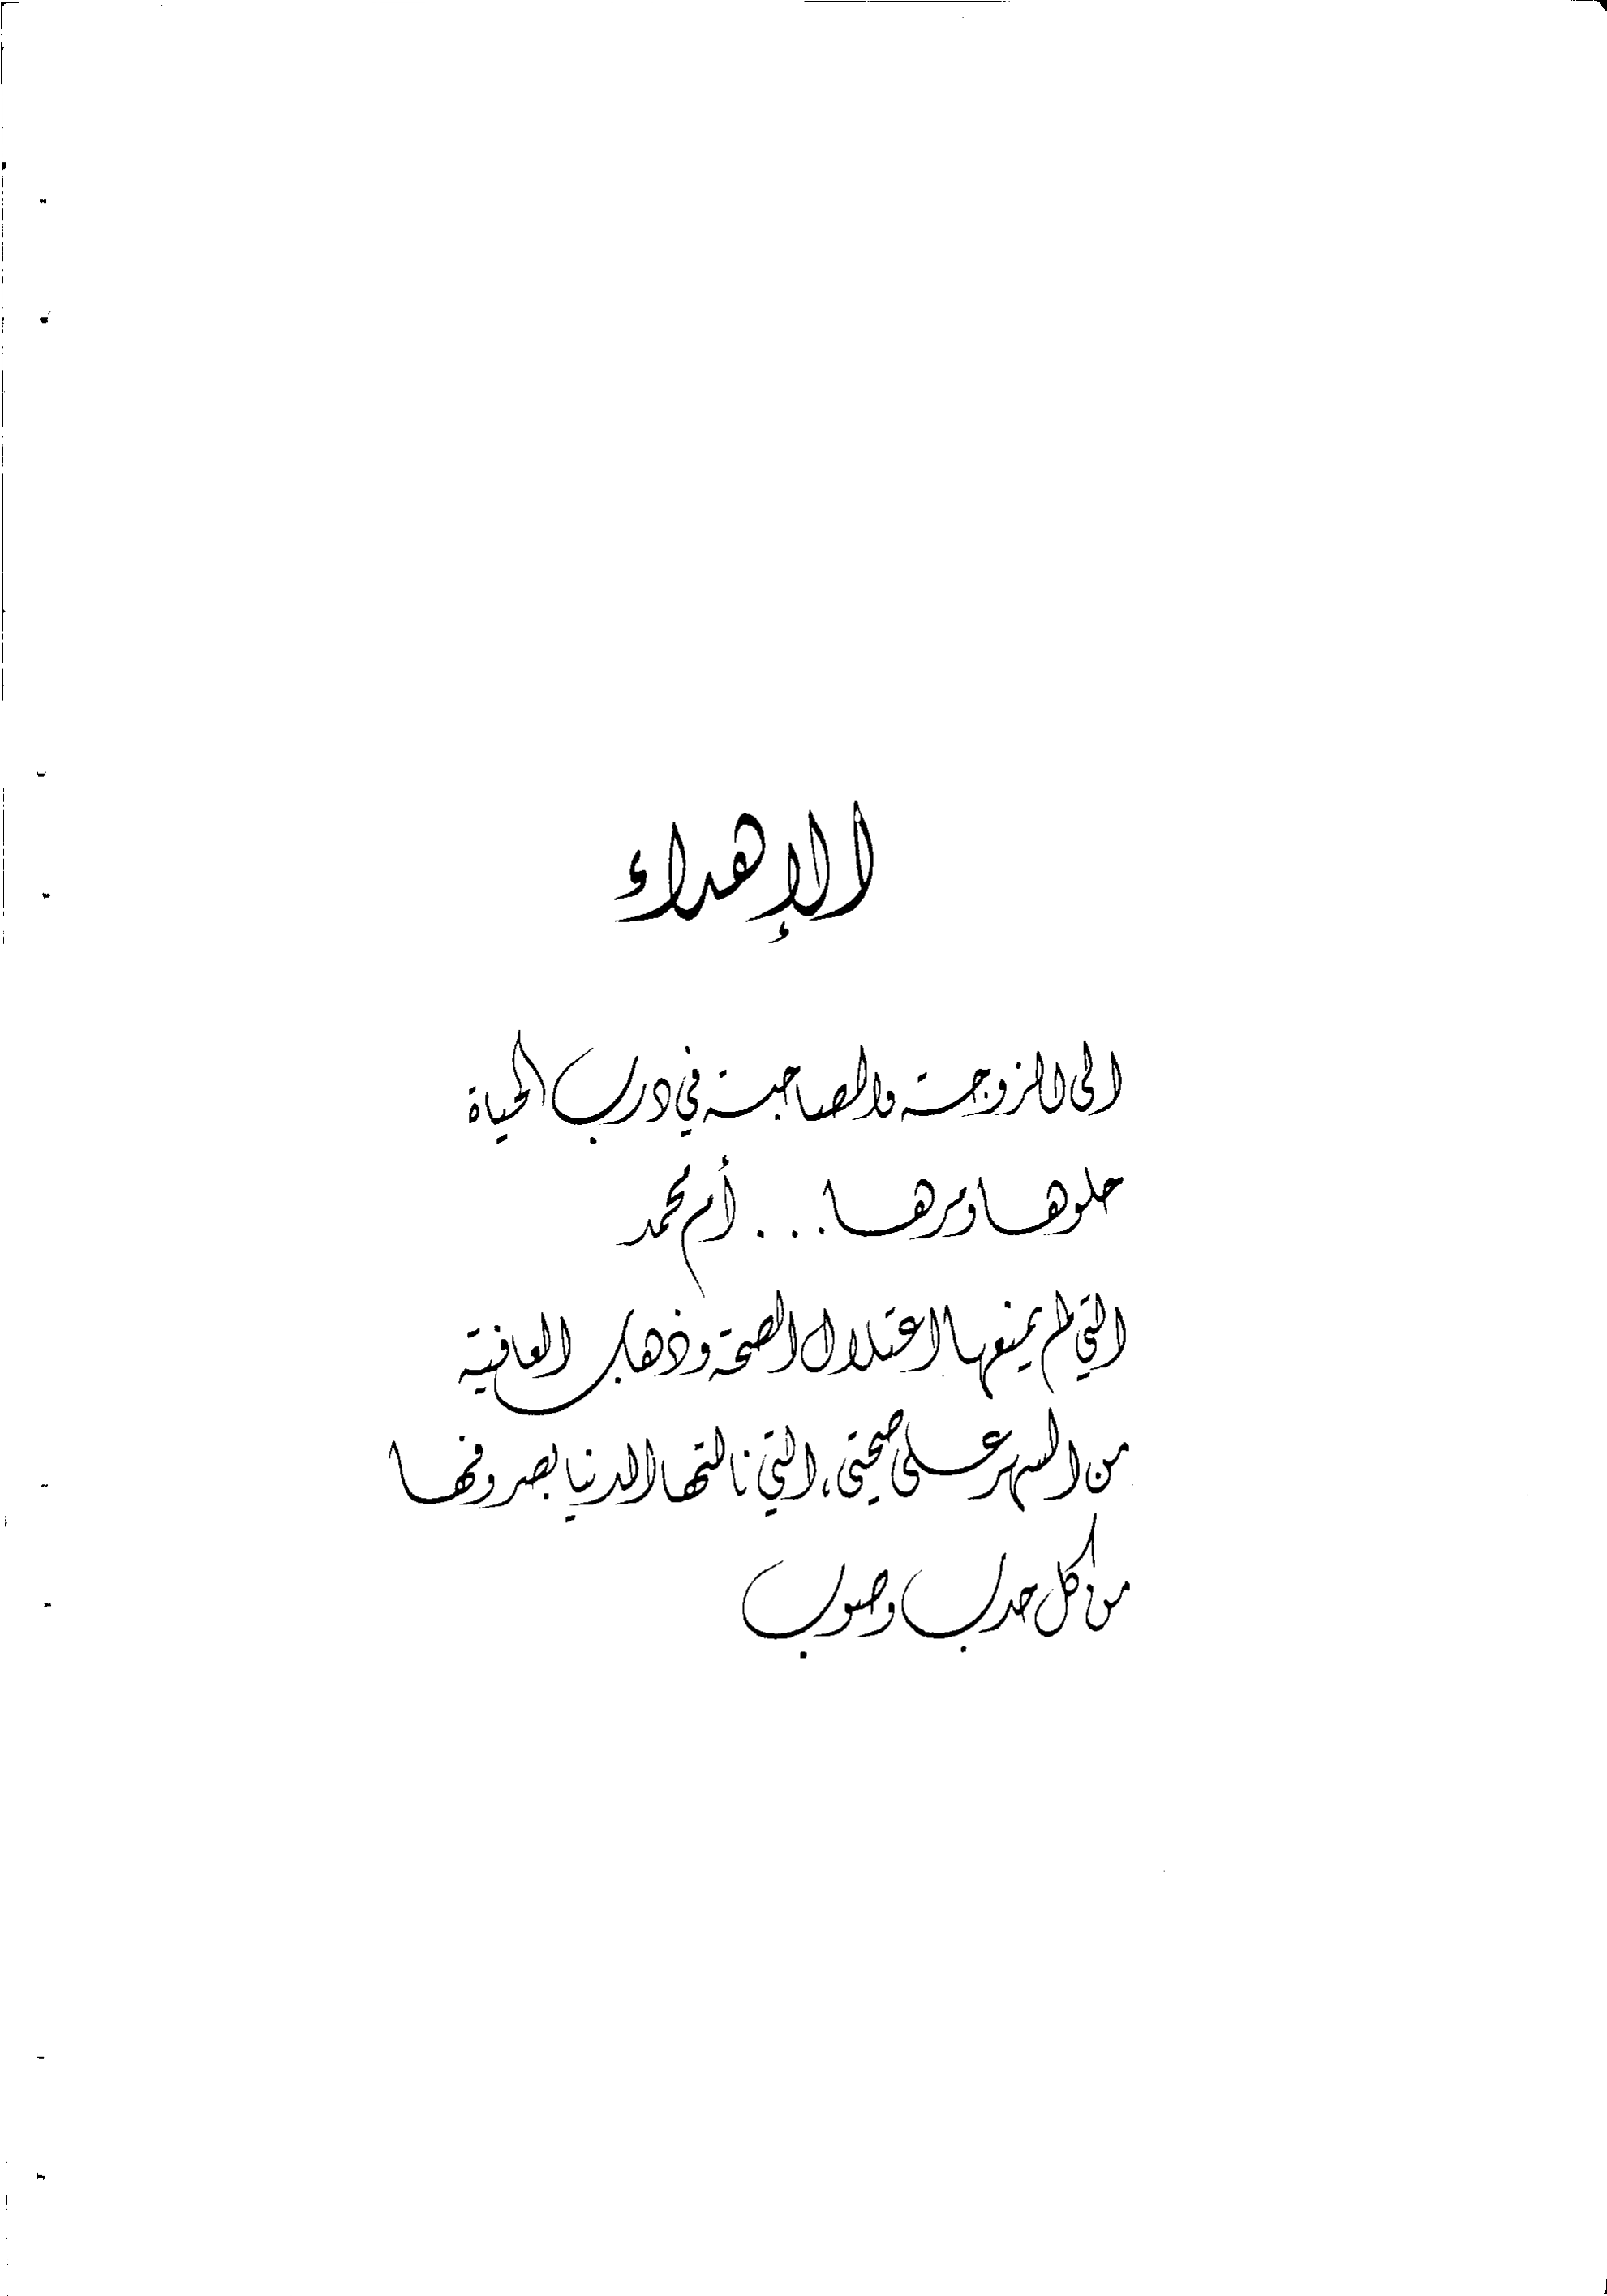 الإهداء
الى الزوجة والصاحبة في درب الحياة
حلوها ومرها . . . أم محمد
التي لم يمنعها اعتلال الصحة وذهاب العافية
من السهر على صحتي، التي نالتها الدنيا بصروفها
من كل حدب وصوب